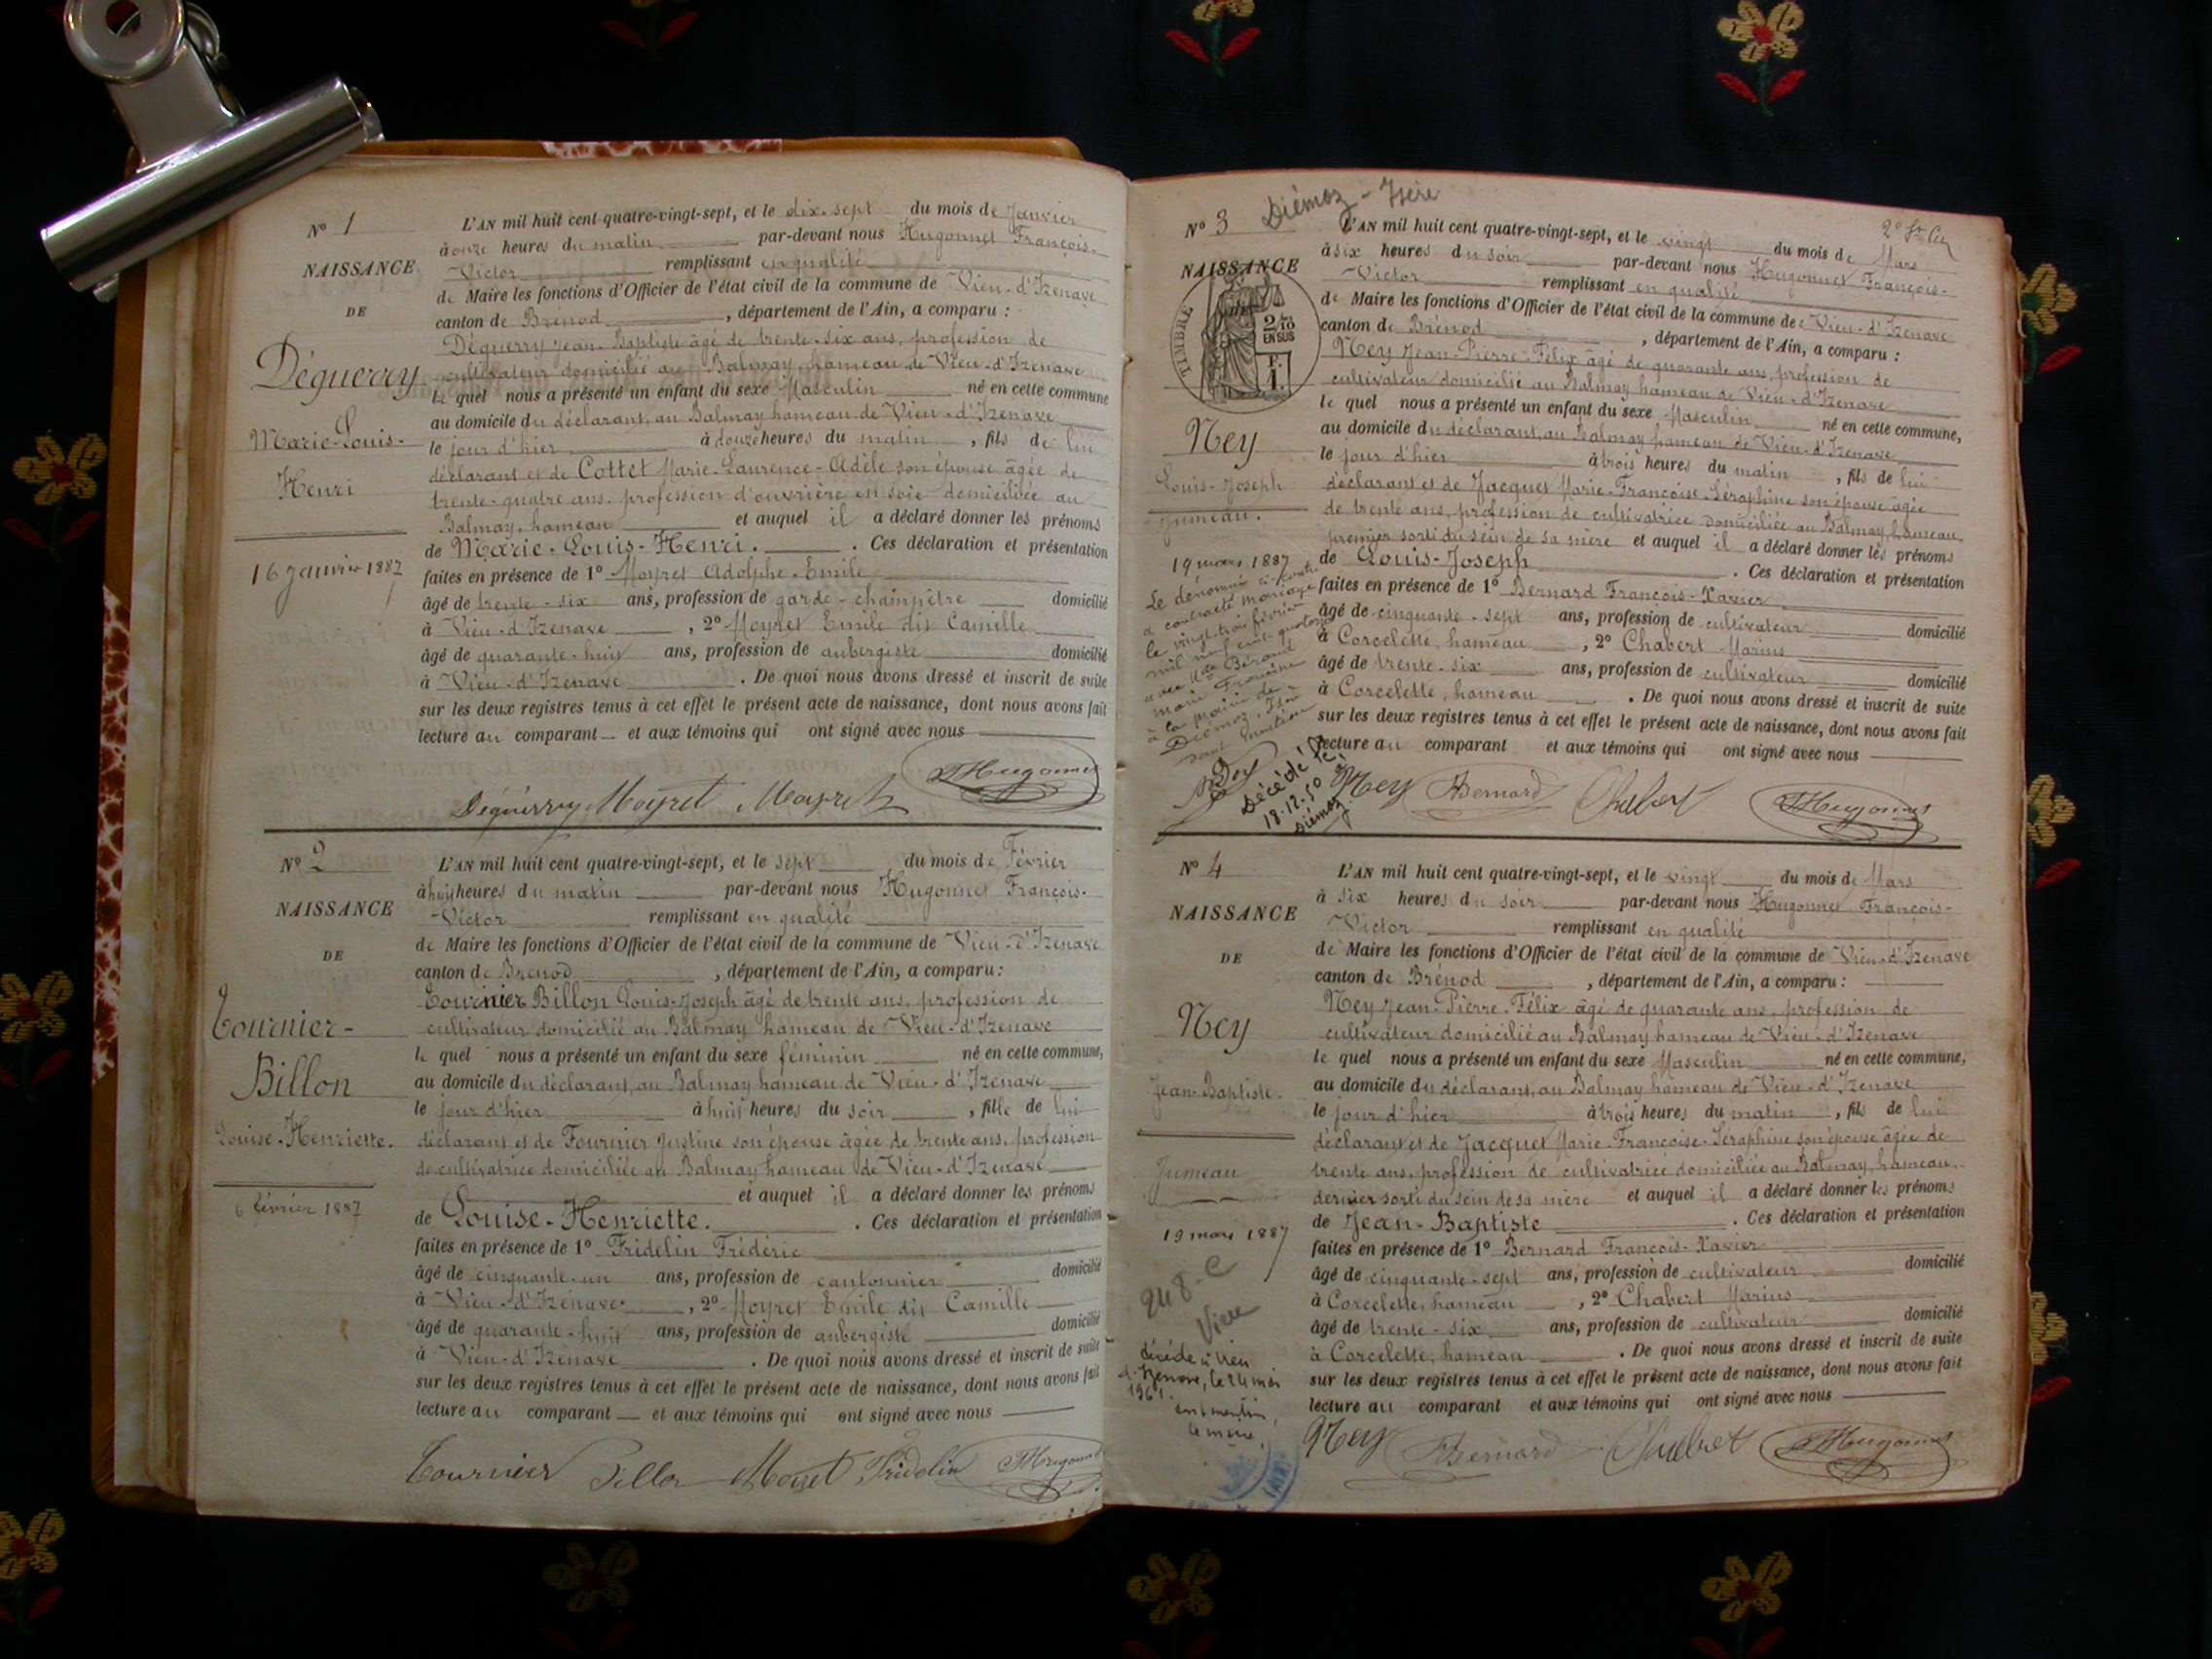 N° 1
NAISSANCE
DE
Déguerry
Marie-Louis-
Henri
16 janvier 1887
L'AN mil huit cent quatre-vingt-sept, et le dix-sept du mois de Janvier
à onze heures du matin par-devant nous Hugonnet François-
Victor remplissant en qualité
de Maire les fonctions d'Officier de l'état civil de la commune de Vieu-d'Izenave
canton de Brénod, département de l'Ain, a comparu :
Déguerry Jean-Baptiste âgé de trente-six ans, profession de
cultivateur domicilié au Balmay, hameau de Vieu-d'Izenave
le quel nous a présenté un enfant du sexe Masculin né en cette commune
au domicile du déclarant, au Balmay hameau de Vieu-d'Izenave
le jour d'hier à douze heures du matin, fils de lui
déclarant et de Cottet Marie-Laurence-Adèle son épouse âgée de
trente-quatre ans, profession d'ouvrière en soie domiciliée au
Balmay, hameau et auquel il a déclaré donner les prénoms
de Marie-Louis-Henri. Ces déclaration et présentation
faites en présence de 1° Moyret Adolphe-Emile
âgé de trente-six ans, profession de garde-champêtre domicilié
à Vieu-d'Izenave, 2° Moyret Emile dit Camille
âgé de quarante-huit ans, profession de aubergiste domicilié
à Vieu-d'Izenave. De quoi nous avons dressé et inscrit de suite
sur les deux registres tenus à cet effet le présent acte de naissance, dont nous avons fait
lecture au comparant et aux témoins qui ont signé avec nous
Déguerry Moyret Moyret Hugonnet
N° 2
NAISSANCE
DE
Tournier-
Billon
Louise-Henriette.
6 février 1887
L'AN mil huit cent quatre-vingt-sept, et le sept du mois de Février
à huit heures du matin par-devant nous Hugonnet François-
Victor remplissant en qualité
de Maire les fonctions d'Officier de l'état civil de la commune de Vieu-d'Izenave
canton de Brénod, département de l'Ain, a comparu :
Tournier Billon Louis-Joseph âgé de trente ans, profession de
cultivateur domicilié au Balmay hameau de Vieu-d'Izenave
le quel nous a présenté un enfant du sexe féminin né en cette commune,
au domicile du déclarant, au Balmay hameau de Vieu-d'Izenave
le jour d'hier à huit heures du soir, fille de lui
déclarant et de Fournier Justine son épouse âgée de trente ans, profession
de cultivatrice domiciliée au Balmay hameau de Vieu-d'Izenave
et auquel il a déclaré donner les prénoms
de Louise-Henriette. Ces déclaration et présentation
faites en présence de 1° Fridelin Frédéric
âgé de cinquante-un ans, profession de cantonnier domicilié
à Vieu-d'Izenave, 2° Moyret Emile dit Camille
âgé de quarante-huit ans, profession de aubergiste domicilié
à Vieu-d'Izenave. De quoi nous avons dressé et inscrit de suite
sur les deux registres tenus à cet effet le présent acte de naissance, dont nous avons fait
lecture au comparant et aux témoins qui ont signé avec nous
Tournier Billon Moyret Fridelin Hugonnet
Diémoz - Isère
N° 3
NAISSANCE
TIMBRE
2/10
EN SUS
F.
1.
Ney
Louis-Joseph
Jumeau.
19 mars 1887
Le dénommé ci-contre
a contracté mariage
le vingt-trois février
mil neuf cent quatorze
avec Mlle Béraud
Marie
à la mairie de
Diémoz, Isère
dont mention
Décédé le
18.12.50 à
Diémoz
L'AN mil huit cent quatre-vingt-sept, et le vingt du mois de Mars
à six heures du soir par-devant nous Hugonnet François-
Victor remplissant en qualité
de Maire les fonctions d'Officier de l'état civil de la commune de Vieu-d'Izenave
canton de Brénod, département de l'Ain, a comparu :
Ney Jean-Pierre-Félix âgé de quarante ans, profession de
cultivateur domicilié au Balmay hameau de Vieu-d'Izenave
le quel nous a présenté un enfant du sexe Masculin né en cette commune,
au domicile du déclarant, au Balmay hameau de Vieu-d'Izenave
le jour d'hier à trois heures du matin, fils de lui
déclarant et de Jacquet Marie-Françoise-Séraphine son épouse âgée
de trente ans, profession de cultivatrice domiciliée au Balmay, hameau,
premier sorti du sein de sa mère et auquel il a déclaré donner les prénoms
de Louis-Joseph. Ces déclaration et présentation
faites en présence de 1° Bernard François-Xavier
âgé de cinquante-sept ans, profession de cultivateur domicilié
à Corcelette, hameau, 2° Chabert Marius
âgé de trente-six ans, profession de cultivateur domicilié
à Corcelette, hameau. De quoi nous avons dressé et inscrit de suite
sur les deux registres tenus à cet effet le présent acte de naissance, dont nous avons fait
lecture au comparant et aux témoins qui ont signé avec nous
Ney Bernard Chabert Hugonnet
N° 4
NAISSANCE
DE
Ney
Jean-Baptiste.
Jumeau
19 mars 1887
248. C
Vieu
décédé à Vieu
d'Izenave, le 24 mai
1961.
dont mention,
le maire,
L'AN mil huit cent quatre-vingt-sept, et le vingt du mois de Mars
à six heures du soir par-devant nous Hugonnet François-
Victor remplissant en qualité
de Maire les fonctions d'Officier de l'état civil de la commune de Vieu-d'Izenave
canton de Brénod, département de l'Ain, a comparu :
Ney Jean-Pierre-Félix âgé de quarante ans, profession de
cultivateur domicilié au Balmay hameau de Vieu-d'Izenave
le quel nous a présenté un enfant du sexe Masculin né en cette commune,
au domicile du déclarant, au Balmay hameau de Vieu-d'Izenave
le jour d'hier à trois heures du matin, fils de lui
déclarant et de Jacquet Marie-Françoise-Séraphine son épouse âgée de
trente ans, profession de cultivatrice domiciliée au Balmay, hameau,
dernier sorti du sein de sa mère et auquel il a déclaré donner les prénoms
de Jean-Baptiste. Ces déclaration et présentation
faites en présence de 1° Bernard François-Xavier
âgé de cinquante-sept ans, profession de cultivateur domicilié
à Corcelette, hameau, 2° Chabert Marius
âgé de trente-six ans, profession de cultivateur domicilié
à Corcelette, hameau. De quoi nous avons dressé et inscrit de suite
sur les deux registres tenus à cet effet le présent acte de naissance, dont nous avons fait
lecture au comparant et aux témoins qui ont signé avec nous
Ney Bernard Chabert Hugonnet